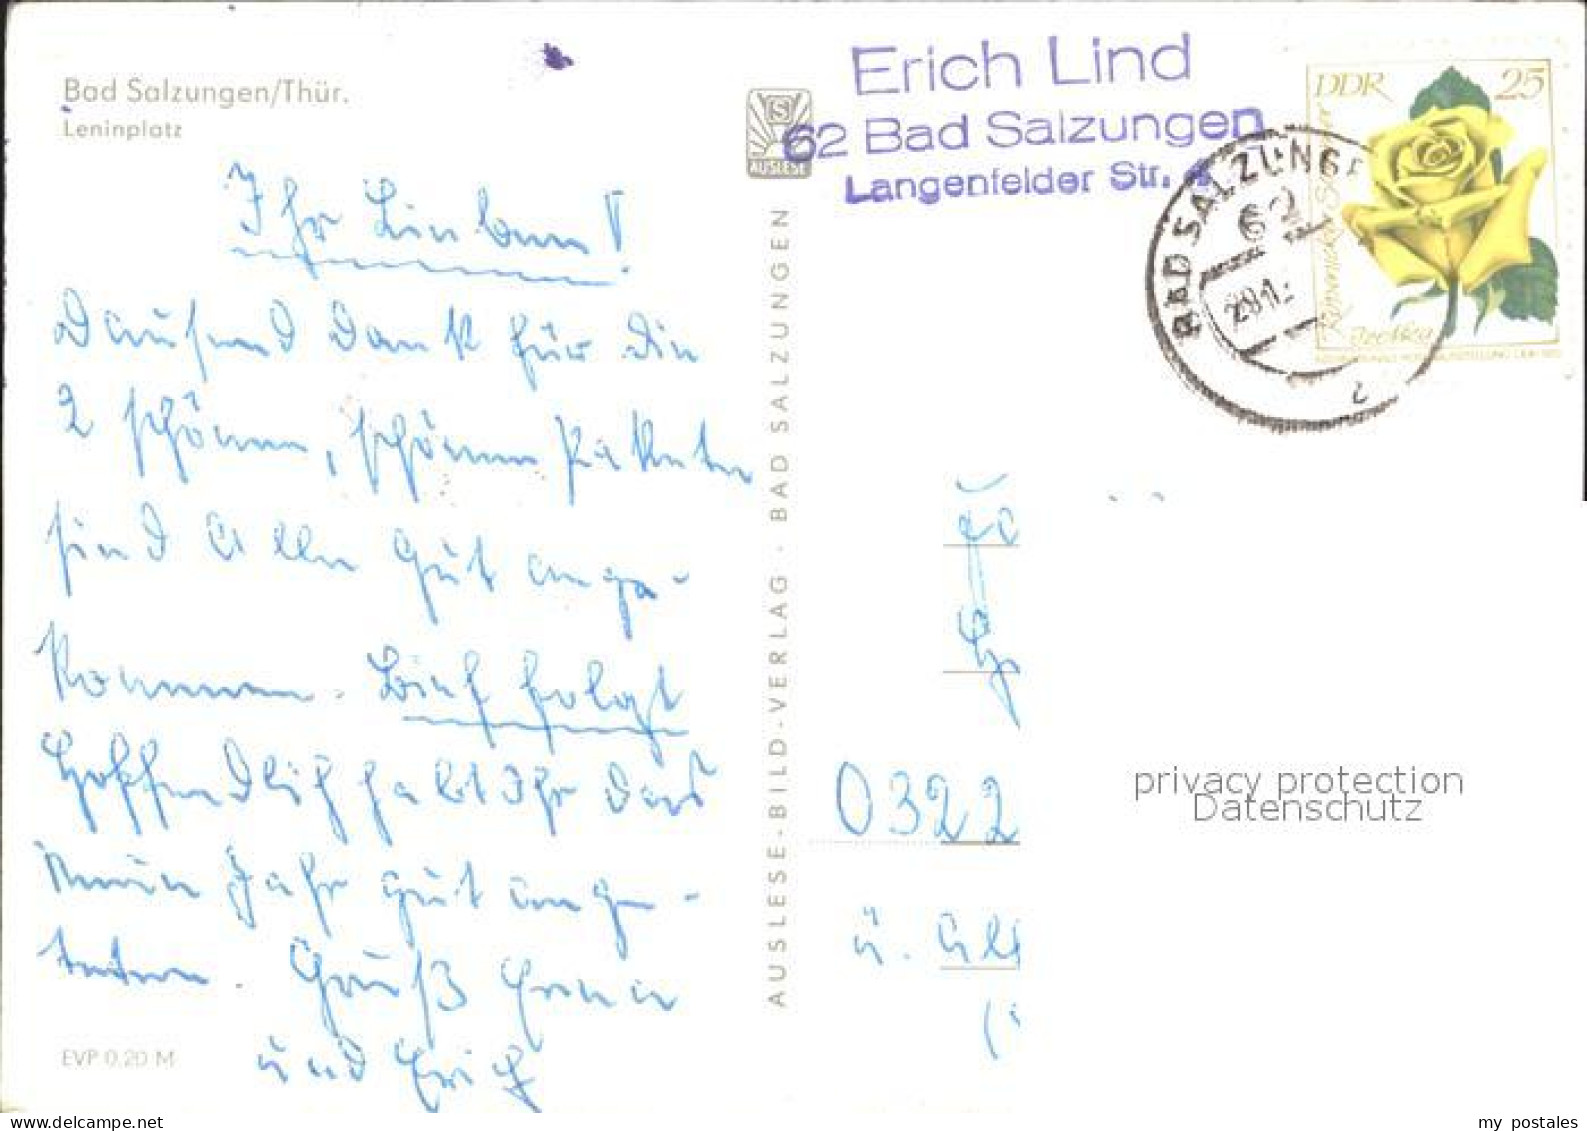 Bad Salzungen/Thür.
Leninplatz
Ihr Lieben!
Dausend Dank für die
2 schönen, schönen Pakete
sind alle gut ange-
kommen. Brief folgt
Hoffendlich habt Ihr das
neue Jahr gut ange-
treten. Gruß Erna
und Erich
EVP 0.20 M
AUSLESE-BILD-VERLAG · BAD SALZUNGEN
S
AUSLESE
Erich Lind
62 Bad Salzungen
Langenfelder Str.
DDR 25
Rosenzüchter
BAD SALZUNGE
62
28.1.
2
0322
u. All
privacy protection
Datenschutz
www.delcampe.net
my_postales